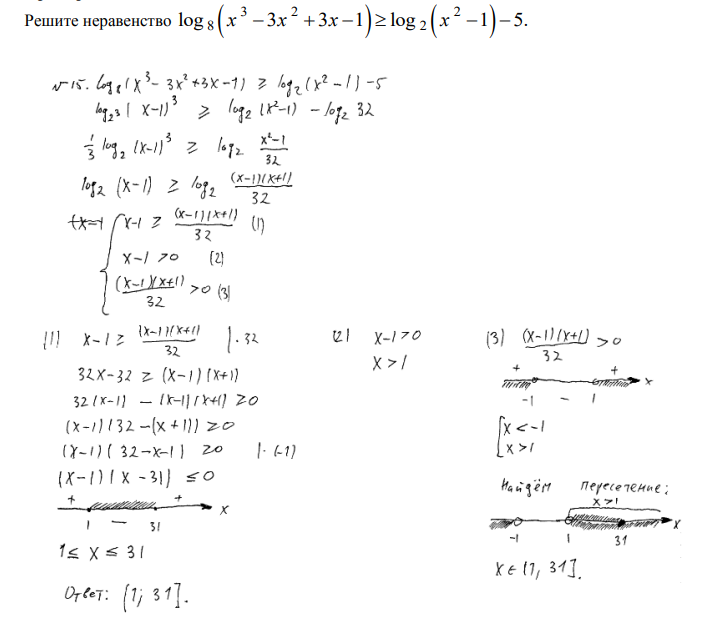 Решите неравенство log₈(x³ − 3x² + 3x − 1) ≥ log₂(x² − 1) − 5.
№15. log₈(x³ − 3x² + 3x − 1) ≥ log₂(x² − 1) − 5
log₂³(x−1)³ ≥ log₂(x²−1) − log₂ 32
1/3 log₂(x−1)³ ≥ log₂ (x²−1)/32
log₂(x−1) ≥ log₂ (x−1)(x+1)/32
{ x−1 ≥ (x−1)(x+1)/32 (1)
x−1 > 0 (2)
(x−1)(x+1)/32 > 0 (3)
(1) x−1 ≥ (x−1)(x+1)/32 |·32
32x−32 ≥ (x−1)(x+1)
32(x−1) − (x−1)(x+1) ≥ 0
(x−1)(32−(x+1)) ≥ 0
(x−1)(32−x−1) ≥ 0 |·(−1)
(x−1)(x−31) ≤ 0
+ + x
1 − 31
1 ≤ x ≤ 31
Ответ: (1; 31].
(2) x−1 > 0
x > 1
(3) (x−1)(x+1)/32 > 0
+ + x
−1 − 1
[ x < −1
x > 1
Найдём пересечение:
x > 1
x
−1 1 31
x ∈ (1, 31].